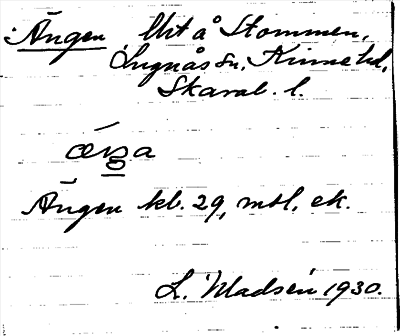 Ängen Utå Stommen,
Lugnås sn, Kinne hd,
Skarab. l.
Ängen kb. 29, mtl, ek.
L. Madsén 1930.